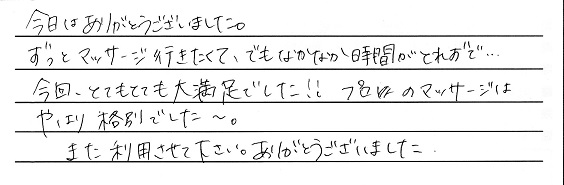 今日はありがとうございました。
ずっとマッサージ行きたくて、でもなかなか時間がとれずで…
今回、とてもとても大満足でした!! プロの マッサージは
やはり 格別でした〜。
また 利用させて下さい。ありがとうございました